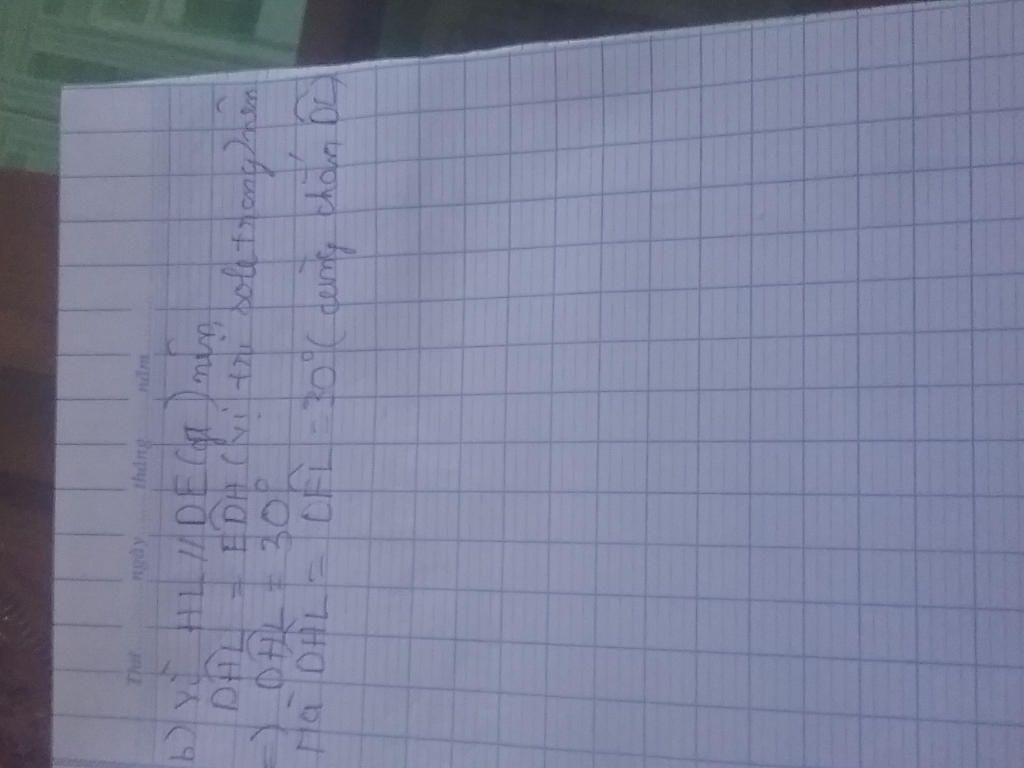 Thứ ngày tháng năm
b) Vì HL // DE (gt) nên
DĤL = ED̂H (vị trí sole trong) nên
=) DĤL = 30°
Mà DĤL = DF̂L = 30° (cùng chắn DL)